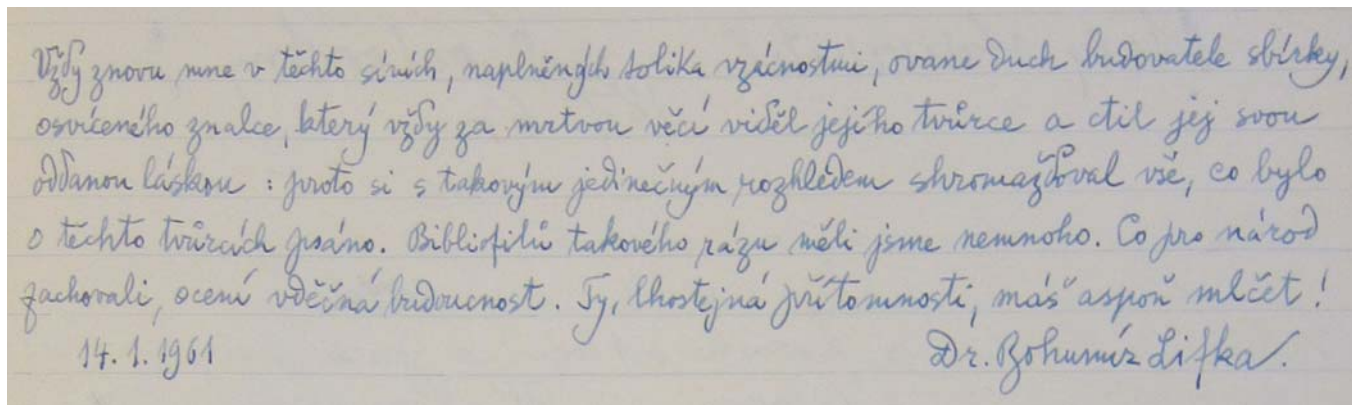 Vždy znovu mne v těchto síních, naplněných tolika vzácnostmi, ovane duch budovatele sbírky,
osvíceného znalce, který vždy za mrtvou věcí viděl jejího tvůrce a ctil jej svou
oddanou láskou : proto si s takovým jedinečným rozhledem shromažďoval vše, co bylo
o těchto tvůrcích psáno. Bibliofilů takového rázu měli jsme nemnoho. Co pro národ
zachovali, ocení vděčná budoucnost. Ty, lhostejná přítomnosti, máš aspoň mlčet!
14. 1. 1961 Dr. Bohumír Lifka.